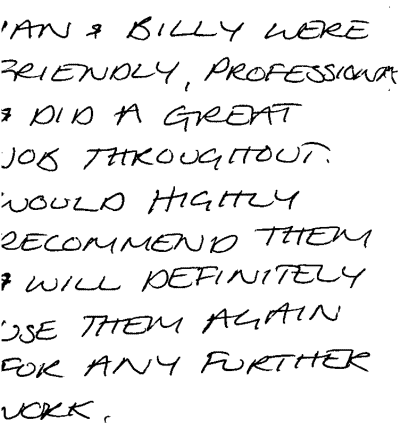 IAN & BILLY WERE
FRIENDLY, PROFESSIONAL
& DID A GREAT
JOB THROUGHOUT.
WOULD HIGHLY
RECOMMEND THEM
& WILL DEFINITELY
USE THEM AGAIN
FOR ANY FURTHER
WORK.